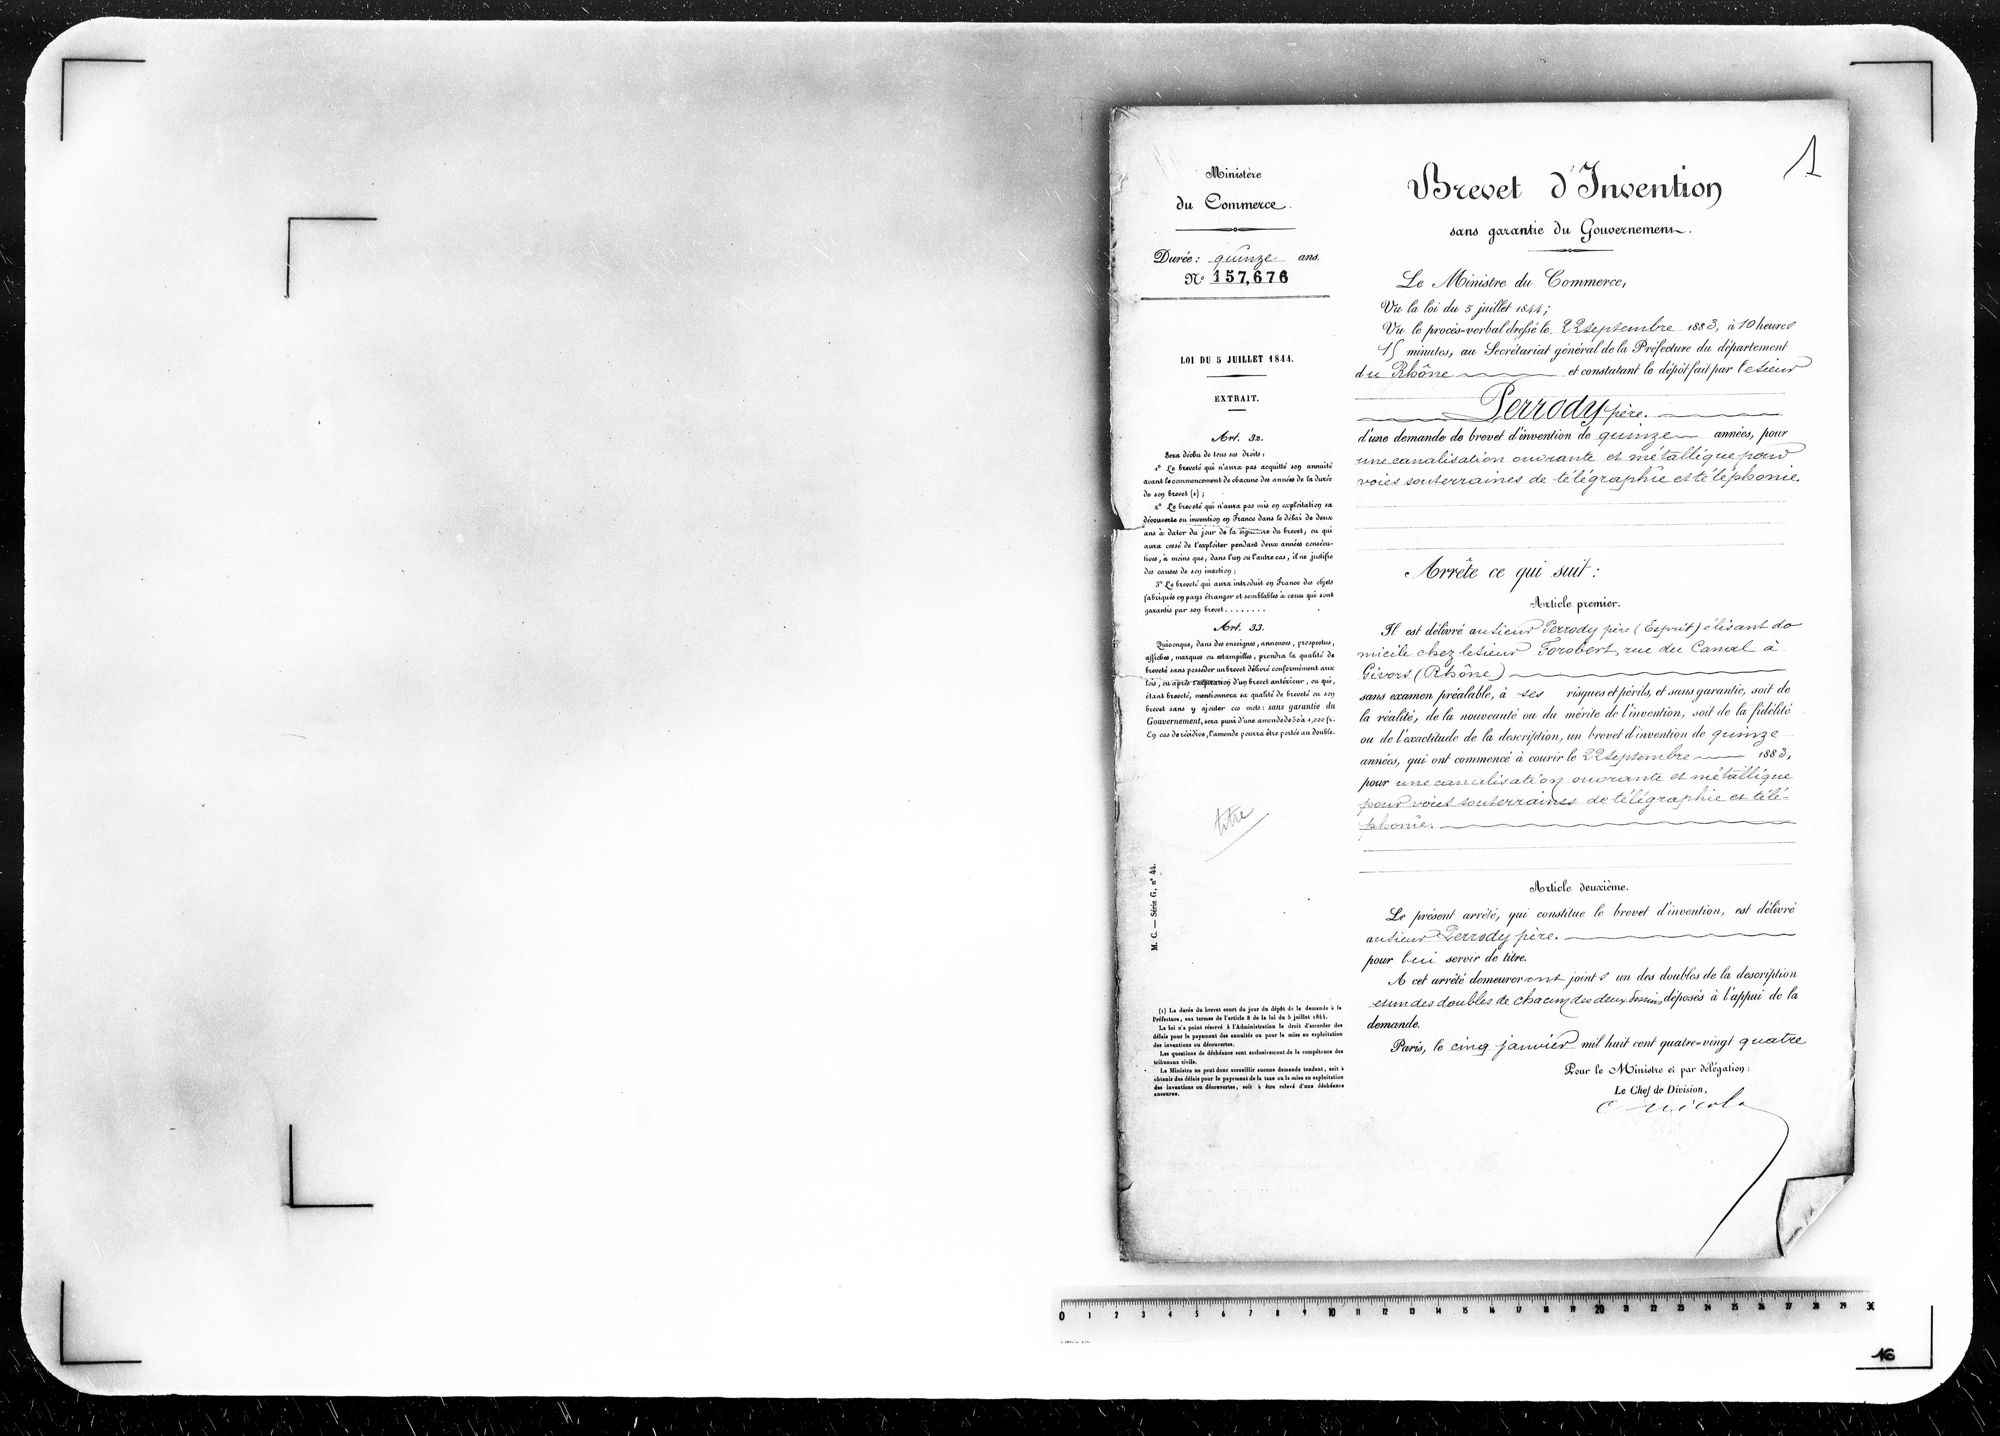 1
Ministère
du Commerce.
Durée : quinze ans.
N° 157,676
LOI DU 5 JUILLET 1844.
EXTRAIT.
Art. 32.
Sera déchu de tous ses droits :
1° Le breveté qui n'aura pas acquitté son annuité
avant le commencement de chacune des années de la durée
de son brevet (1) ;
2° Le breveté qui n'aura pas mis en exploitation sa
découverte ou invention en France dans le délai de deux
ans à dater du jour de la signature du brevet, ou qui
aura cessé de l'exploiter pendant deux années consécu-
tives, à moins que, dans l'un ou l'autre cas, il ne justifie
des causes de son inaction ;
3° Le breveté qui aura introduit en France des objets
fabriqués en pays étranger et semblables à ceux qui sont
garantis par son brevet........
Art. 33.
Quiconque, dans des enseignes, annonces, prospectus,
affiches, marques ou estampilles, prendra la qualité de
breveté sans posséder un brevet délivré conformément aux
lois, ou après l'expiration d'un brevet antérieur, ou qui,
étant breveté, mentionnera sa qualité de breveté ou son
brevet sans y ajouter ces mots : sans garantie du
Gouvernement, sera puni d'une amende de 50 à 1,000 fr.
En cas de récidive, l'amende pourra être portée au double.
titre
M. C. — Série G, n° 44.
(1) La durée du brevet court du jour du dépôt de la demande à la
Préfecture, aux termes de l'article 8 de la loi du 5 juillet 1844.
La loi n'a point réservé à l'Administration le droit d'accorder des
délais pour le payement des annuités ou pour la mise en exploitation
des inventions ou découvertes.
Les questions de déchéance sont exclusivement de la compétence des
tribunaux civils.
Le Ministre ne peut donc accueillir aucune demande tendant, soit à
obtenir des délais pour le payement de la taxe ou la mise en exploitation
des inventions ou découvertes, soit à être relevé d'une déchéance
encourue.
Brevet d'Invention
sans garantie du Gouvernement.
Le Ministre du Commerce,
Vu la loi du 5 juillet 1844 ;
Vu le procès-verbal dressé le 22 septembre 1883, à 10 heures
15 minutes, au Secrétariat général de la Préfecture du département
du Rhône et constatant le dépôt fait par le sieur
Perrody père.
d'une demande de brevet d'invention de quinze années, pour
une canalisation ouvrante et métallique pour
voies souterraines de télégraphie et téléphonie.
Arrête ce qui suit :
Article premier.
Il est délivré au sieur Perrody père (Esprit) élisant do
micile chez le sieur Forobert, rue du Canal à
Givors (Rhône)
sans examen préalable, à ses risques et périls, et sans garantie, soit de
la réalité, de la nouveauté ou du mérite de l'invention, soit de la fidélité
ou de l'exactitude de la description, un brevet d'invention de quinze
années, qui ont commencé à courir le 22 septembre 1883,
pour une canalisation ouvrante et métallique
pour voies souterraines de télégraphie et télé-
phonie.
Article deuxième.
Le présent arrêté, qui constitue le brevet d'invention, est délivré
au sieur Perrody père.
pour lui servir de titre.
A cet arrêté demeureront joints un des doubles de la description
et un des doubles de chacun des deux dessins déposés à l'appui de la
demande.
Paris, le cinq janvier mil huit cent quatre-vingt quatre
Pour le Ministre et par délégation :
Le Chef de Division,
C Nicola
0 1 2 3 4 5 6 7 8 9 10 11 12 13 14 15 16 17 18 19 20 21 22 23 24 25 26 27 28 29 30
16